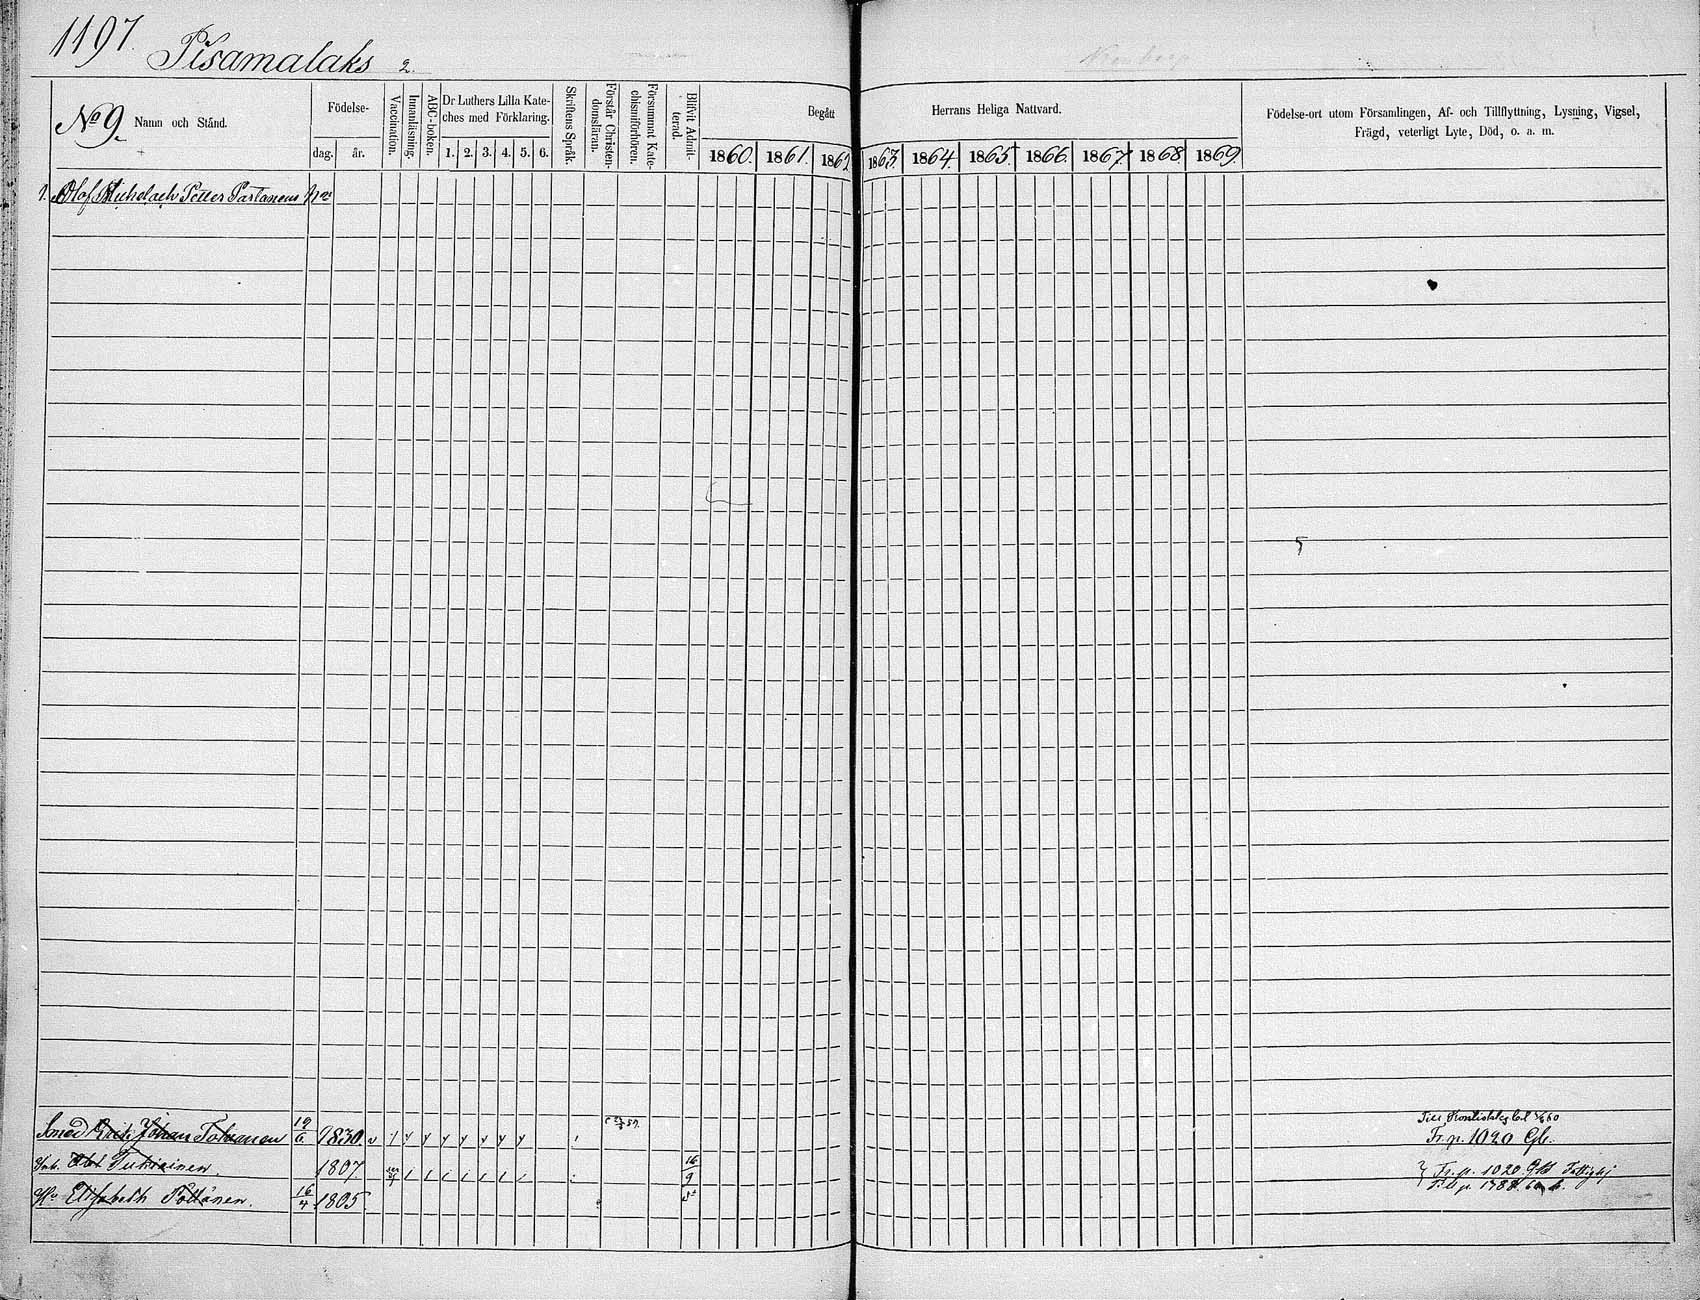 1197.
Pisamalaks 2.
No 9.
Namn och Stånd.
Födelse-
dag.
år.
Vaccination.
Innanläsning.
ABC-boken.
Dr Luthers Lilla Kate-
ches med Förklaring.
1. 2. 3. 4. 5. 6.
Skriftens Språk.
Förstår Christen-
domsläran.
Försummat Kate-
chismiförhören.
Blifvit Admit-
terad.
Begått Herrans Heliga Nattvard.
1860. 1861. 1862 1863. 1864. 1865. 1866. 1867. 1868. 1869.
Födelse-ort utom Församlingen, Af- och Tillflyttning, Lysning, Vigsel,
Frägd, veterligt Lyte, Död, o. a. m.
1. Olof Michelsch Petter Partanens
Smed Erik Johan Tolvanen 19/6 1830.
Fr. p. 1020
Tukiainen. 1807. 16/9
Fr. p. 1020
Hu Elisabeth Pöllänen. 16/4 1805.